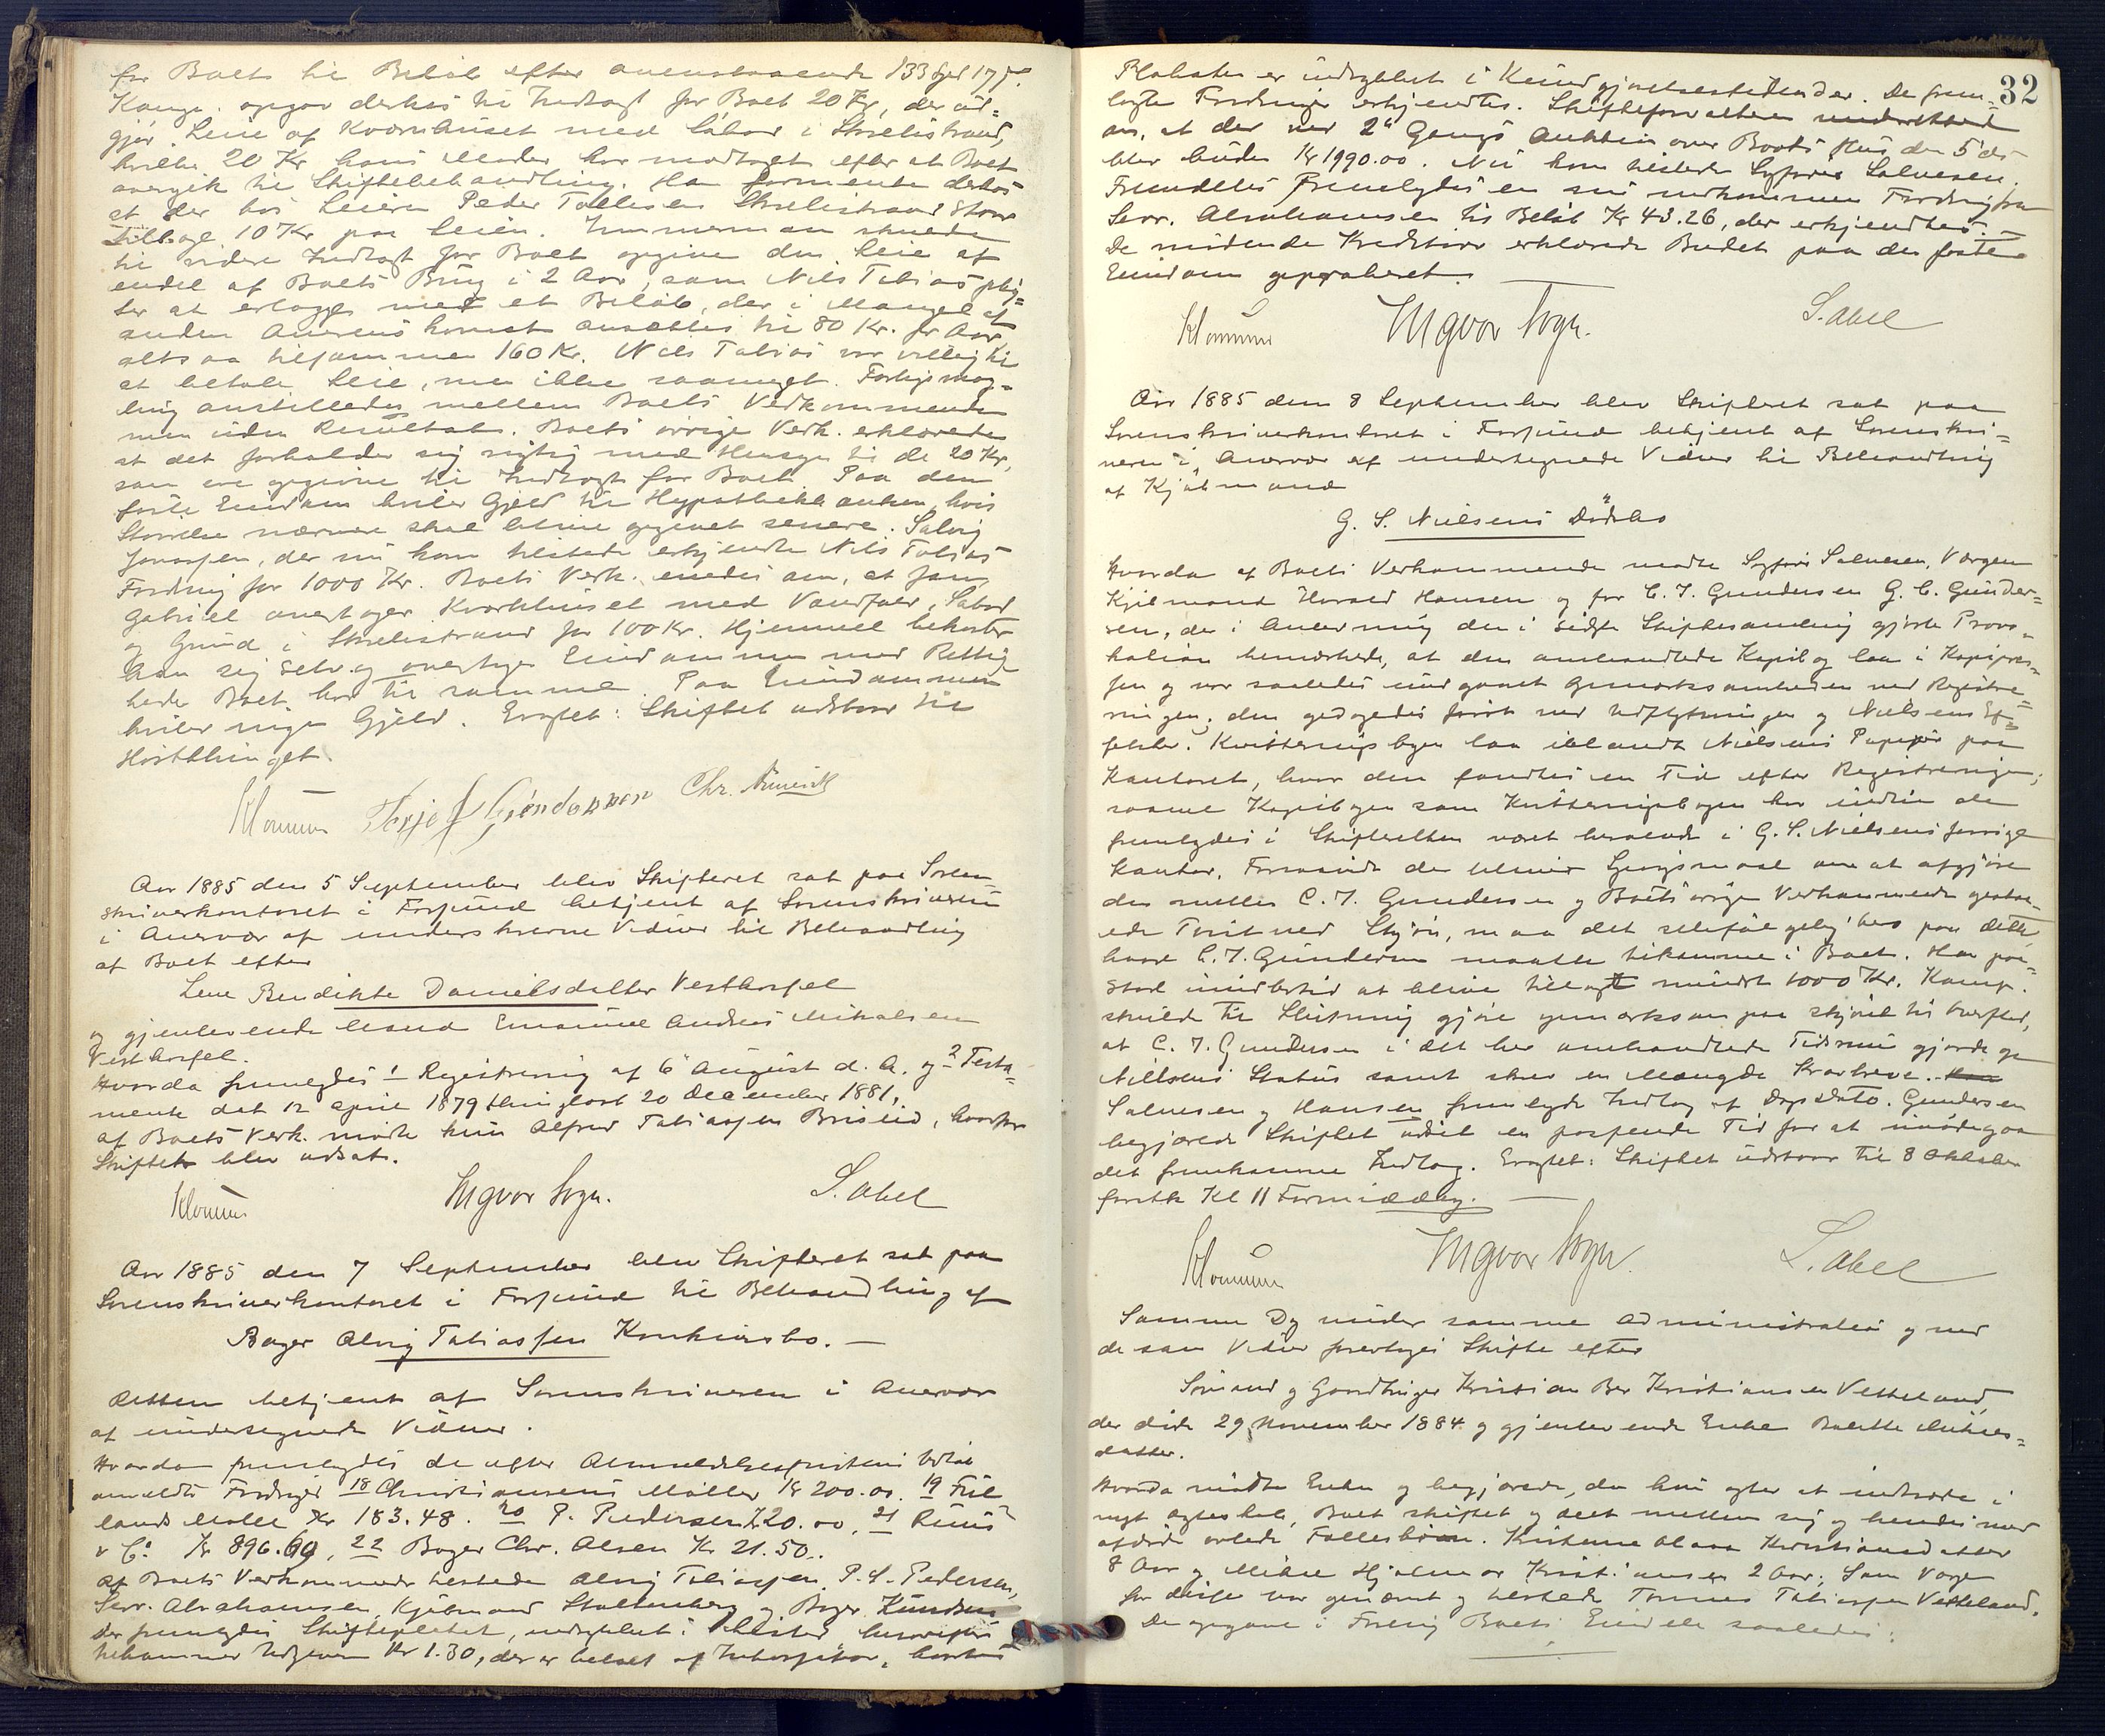 for Boet til Beløb efter ovenstaaende 133 Spd 17 s.
Kange. opgav derhos til Indtægt for Boet 20 Kr, der ud=
gjør Leie af Kværnhuset med Labod i Skrelistrand,
hvilke 20 Kr hans Moder har modtaget efter at Boet
overgik til Skiftebehandling. Han formente derhos
at der hos Leieren Peder Tollefsen Skrelistrand staar
tilbage 10 Kr paa Leien. Immerman
til videre Indtægt for Boet opgive den Leie af
endel af Boets Brug i 2 Aar, som Nils Tobias plig=
ter at erlægge med et Beløb, der i Mangel af
anden Overenskomst ansættes til 80 Kr. pr Aar
altsaa tilsammen 160 Kr. Nils Tobias var villig til
at betale Leie, men ikke saameget. Forligsmæg=
ling anstilledes mellem Boets Vedkommende
men uden Resultat. Boets øvrige Vedk. erklærede
at det forholder sig rigtig med Hensyn til de 20 Kr,
som ere opgivne til Indtægt for Boet. Paa den
faste Eiendom hviler Gjeld til Hypothekbanken, hvis
Størrelse nærmere skal blive opgivet senere. Salvig
Jonassen, der nu kom tilstede erkjendte Nils Tobias
Fordring for 1000 Kr. Boets Vedk. enedes om, at Jens
Gabriel overtager Kværnhuset med Vandfald, Labod
og Grund i Skrelistrand for 100 Kr. Hjemmel bekoster
han sig selv og overtager Eiendommen med Rettig
heder Boet har til samme. Paa Eiendommen
hviler ingen Gjeld. Eragtet: Skiftet udstaar til
Høstthinget.
Klouman Terjef Gjøndannen Chr.
Aar 1885 den 5 September blev Skifteret sat paa Soren=
skriverkontoret i Farsund betjent af Sorenskriveren
i Overvær af underskrevne Vidner til Behandling
af Boet efter
Lene Bendikte Danielsdatter Vesthassel
og gjenlevende Mand Emanuel Andreas Mikalsen
Vesthassel.
Hvorda fremlagdes 1 Registrering af 6 August d. A. og 2 Testa=
mente dat 12 April 1879 thinglæst 20 December 1881,
af Boets Vedk. mødte kun Alfred Tobiassen Briseid, hvorfor
Skiftet blev udsat.
Klouman Ingvar Sogn. S. Abel
Aar 1885 den 7 September blev Skifteret sat paa
Sorenskriverkontoret i Farsund til Behandling af
Bager Alvig Tobiassen Konkursbo. —
Retten betjent af Sorenskriveren i Overvær
af undertegnede Vidner.
Hvorda fremlagdes de efter Anmeldelsesfristens Udløb
anmeldte Fordringer 18 Christiansens Mølle Kr 200.00. 19 Fuk
lands Mølle Kr 183.48. 20 P. Pedersen Kr 20.00, 21 Ruus
& Co Kr 896.69, 22 Bager Chr. Olsen Kr 21.50.
Af Boets Vedkommende tilstede Alvig Tobiassen, P. S. Pedersen,
Sevr. Abrahamsen, Kjøbmand Stoltenberg og Bager Knudsen
Der fremlagdes Skifteplakat, indrykket i Lister
bekommer Udgiven Kr 1.30, der er betalt af Inkassator,
32
Plakaten er indrykket i Kundgjørelsestidende. De frem=
lagte Fordringer erkjendtes. Skifteforvalteren
om, at der ved 2den Gangs Auktion over Boets Hus den 5 ds
blev buden Kr 1990.00. Nu kom tilstede Sagfører Salvesen.
Fremdeles fremlagdes en nu indkommen Fordring fra
Sevr. Abrahamsen til Beløb Kr 43.26, der erkjendtes. —
De mødende Kreditorer erklærede Budet paa den faste
Eiendom approberet.
Klouman Ingvar Sogn. S. Abel
Aar 1885 den 8 September blev Skifteret sat paa
Sorenskriverkontoret i Farsund betjent af Sorenskri=
veren i Overvær af undertegnede Vidner til Behandling
af Kjøbmand
G. S. Nielsens Dødsbo
Hvorda af Boets Vedkommende mødte Sagfører Salvesen, Værgen
Kjøbmand Harald Hansen og for C. T. Gundersen G. C. Gunder=
sen, der i Anledning den i sidste Skiftesamling gjorte Provo=
kation bemærkede, at den omhandlede Kopibog laa i Kopipres=
sen og var saaledes undgaaet Opmærksomheden ved Registre=
ringen, den opdagedes først ved Udflytningen af Nielsens Ef=
fekter. Kvitteringsbogen laa iblandt Nielsens Papirer paa
Kontoret, hvor den fandtes en Tid efter Registreringen;
saavel Kopibogen som Kvitteringsbogen har indtil de
fremlagdes i Skifteretten været beroende i G. S. Nielsens forrige
Kontor. Forsaavidt der bliver Spørgsmaal om at afgjøre
den mellem C. T. Gundersen og Boets øvrige Vedkommende opstaa=
ede Tvist ved Skjøn, maa det selvfølgelig bero paa dette
hvad C. T. Gundersen maatte tilkomme i Boet. Han paa=
stod imidlertid at blive tillagt mindst 1000 Kr. Komp.
skulde til Slutning gjøre opmærksom paa
at C. T. Gundersen i det her omhandlede Tidsrum gjorde op
Nielsens Status samt skrev en Mængde Kravbreve.
Salvesen og Hansen fremlagde Indlæg af Dags Dato. Gundersen
begjærede Skiftet udsat en passende Tid for at imødegaa
det fremkomne Indlæg. Eragtet: Skiftet udstaar til 8 Oktober
førstk Kl 11 Formiddag. —
Klouman Ingvar Sogn. S. Abel
Samme Dag under samme Administration og med
de samme Vidner foretoges Skifte efter
Sømand og Gaardbruger Kristian Ber Kristiansen Vetteland,
der døde 29 November 1884 og gjenlevende Enke Bolette Mikals=
datter.
Hvorda mødte Enken og begjærede, da hun agter at indtræde i
nyt Ægteskab, Boet skiftet og delt mellem sig og hendes med
afdøde avlede Fællesbørn. Kristiansdatter
8 Aar og Mikal Hjalmar Kristiansen 2 Aar; Som Værge
for disse var opnævnt og tilstede Tønnes Tobiassen Vetteland.
De opgave i Forening Boets Eiendele saaledes: